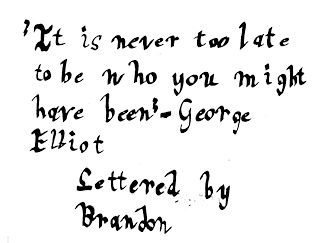 'It is never too late
to be who you might
have been'-George
Elliot
Lettered by
Brandon